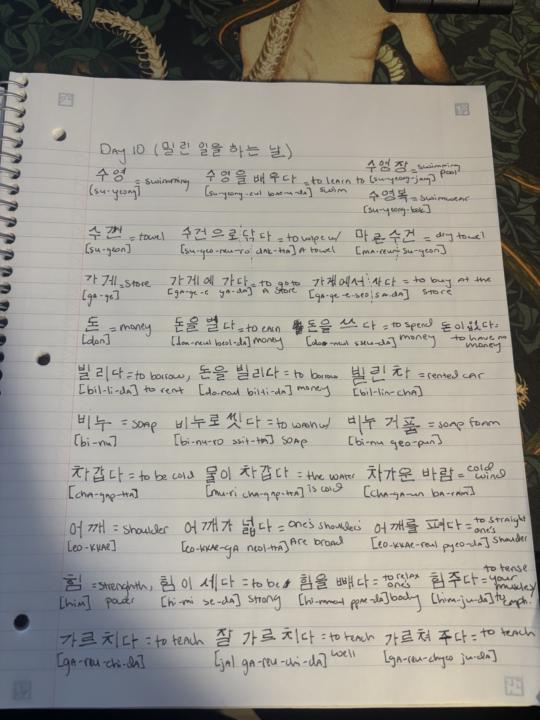 Day 10 (밀린 일을 하는 날)
수영 = swimming 수영을 배우다 = to learn to swim 수영장 = swimming pool
[su-yeong] [su-yeong-eul bae-u-da] [su-yeong-jang]
수영복 = swimwear
[su-yeong-bok]
수건 = towel 수건으로 닦다 = to wipe w/ a towel 마른 수건 = dry towel
[su-geon] [su-geo-neu-ro dak-tta] [ma-reun su-geon]
가게 = store 가게에 가다 = to go to a store 가게에서 사다 = to buy at the store
[ga-ge] [ga-ge-e ga-da] [ga-ge-e-seo sa-da]
돈 = money 돈을 벌다 = to earn money 돈을 쓰다 = to spend money 돈이 없다 = to have no money
[don] [do-neul beol-da] [do-neul sseu-da]
빌리다 = to borrow, to rent 돈을 빌리다 = to borrow money 빌린 차 = rented car
[bil-li-da] [do-neul bil-li-da] [bil-lin-cha]
비누 = soap 비누로 씻다 = to wash w/ soap 비누 거품 = soap foam
[bi-nu] [bi-nu-ro ssit-tta] [bi-nu geo-pum]
차갑다 = to be cold 물이 차갑다 = the water is cold 차가운 바람 = cold wind
[cha-gap-tta] [mu-ri cha-gap-tta] [cha-ga-un ba-ram]
어깨 = shoulder 어깨가 넓다 = one's shoulders are broad 어깨를 펴다 = to straight one's shoulder
[eo-kkae] [eo-kkae-ga neol-tta] [eo-kkae-reul pyeo-da]
힘 = strenghth, power 힘이 세다 = to be strong 힘을 빼다 = to relax one's body 힘주다 = to tense your muscles/ to emph.
[him] [hi-mi se-da] [hi-meul ppae-da] [him-ju-da]
가르치다 = to teach 잘 가르치다 = to teach well 가르쳐 주다 = to teach
[ga-reu-chi-da] [jal ga-reu-chi-da] [ga-reu-chyeo ju-da]